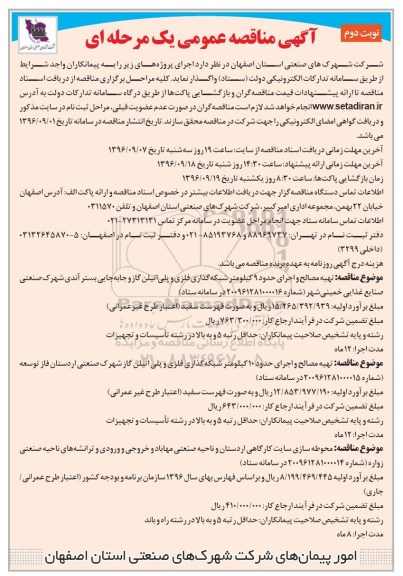 نوبت دوم
آگهی مناقصه عمومی یک مرحله ای
شرکت شهرک های صنعتی استان اصفهان در نظر دارد اجرای پروژه‌های زیر را به پیمانکاران واجد شرایط
از طریق سامانه تدارکات الکترونیکی دولت (ستاد) واگذار نماید. کلیه مراحل برگزاری مناقصه از دریافت اسناد
مناقصه تا ارائه پیشنهادات قیمت مناقصه‌گران و بازگشایی پاکت‌ها از طریق درگاه سامانه تدارکات دولت به آدرس
www.setadiran.ir انجام خواهد شد لازم است مناقصه‌گران در صورت عدم عضویت قبلی، مراحل ثبت نام در سایت مذکور
و دریافت گواهی امضای الکترونیکی را جهت شرکت در مناقصه محقق سازند. تاریخ انتشار مناقصه در سامانه تاریخ ۱۳۹۶/۰۹/۰۱
می باشد.
آخرین مهلت زمانی دریافت اسناد مناقصه از سایت: ساعت ۱۹ روز سه‌شنبه تاریخ ۱۳۹۶/۰۹/۰۷
آخرین مهلت زمانی ارائه پیشنهاد: ساعت ۱۴:۳۰ روز شنبه تاریخ ۱۳۹۶/۰۹/۱۸
زمان بازگشایی پاکت‌ها: ساعت ۸:۳۰ روز یکشنبه تاریخ ۱۳۹۶/۰۹/۱۹
اطلاعات تماس دستگاه مناقصه‌گزار جهت دریافت اطلاعات بیشتر در خصوص اسناد مناقصه و ارائه پاکت الف: آدرس اصفهان
خیابان ۲۲ بهمن، مجموعه اداری امیر کبیر، شرکت شهرک‌های صنعتی استان اصفهان و تلفن ۰۳۱۱۵۷۰
اطلاعات تماس سامانه ستاد جهت انجام مراحل عضویت در سامانه مرکز تماس ۲۷۳۱۳۱۳۱-۰۲۱
دفتر ثبت نام در تهران: ۸۸۹۶۹۷۳۷ و ۸۵۱۹۳۷۶۸-۰۲۱ و دفتر ثبت نام در اصفهان: ۵-۰۳۱۳۲۶۴۵۸۷۰
(داخلی ۳۲۹۹)
هزینه درج آگهی روزنامه به عهده برنده مناقصه می باشد.
موضوع مناقصه: تهیه مصالح و اجرای حدود ۹ کیلومتر شبکه گذاری فلزی و پلی اتیلن گاز و جابه‌جایی بستر آندی شهرک صنعتی
صنایع غذایی خمینی‌شهر (شماره ۲۰۰۹۶۱۲۸۱۰۰۰۰۱۶ در سامانه ستاد)
مبلغ برآورد اولیه: ۱۵/۲۶۵/۳۹۲/۹۳۹ ریال و به صورت فهرست سفید (اعتبار طرح غیر عمرانی)
مبلغ تضمین شرکت در فرآیند ارجاع کار: ۷۶۳/۳۰۰/۰۰۰ ریال
رشته و پایه تشخیص صلاحیت پیمانکاران: حداقل رتبه ۵ و به بالا در رشته تأسیسات و تجهیزات
مدت اجرا: ۱۲ ماه
موضوع مناقصه: تهیه مصالح و اجرای حدود ۱۰ کیلومتر شبکه‌گذاری فلزی و پلی اتیلن گاز شهرک صنعتی اردستان فاز توسعه
(شماره ۲۰۰۹۶۱۲۸۱۰۰۰۰۱۵ در سامانه ستاد)
مبلغ برآورد اولیه: ۱۲/۸۵۳/۹۷۷/۱۹۰ ریال و به صورت فهرست سفید (اعتبار طرح غیر عمرانی)
مبلغ تضمین شرکت در فرآیند ارجاع کار: ۶۴۳/۰۰۰/۰۰۰ ریال
رشته و پایه تشخیص صلاحیت پیمانکاران: حداقل رتبه ۵ و به بالا در رشته تأسیسات و تجهیزات
مدت اجرا: ۱۲ ماه
موضوع مناقصه: محوطه سازی سایت کارگاهی اردستان و ناحیه صنعتی مهاباد و خروجی و ورودی و ترانشه‌های ناحیه صنعتی
زواره (شماره ۲۰۰۹۶۱۲۸۱۰۰۰۰۱۴ در سامانه ستاد)
مبلغ برآورد اولیه ۸/۱۹۹/۴۶۹/۴۴۵ ریال و براساس فهارس بهای سال ۱۳۹۶ سازمان برنامه و بودجه کشور (اعتبار طرح عمرانی/
جاری)
مبلغ تضمین شرکت در فرآیند ارجاع کار: ۴۱۰/۰۰۰/۰۰۰ ریال
رشته و پایه تشخیص صلاحیت پیمانکاران: حداقل رتبه ۵ و به بالا در رشته راه و باند
مدت اجرا: ۸ ماه
امور پیمان‌های شرکت شهرک‌های صنعتی استان اصفهان